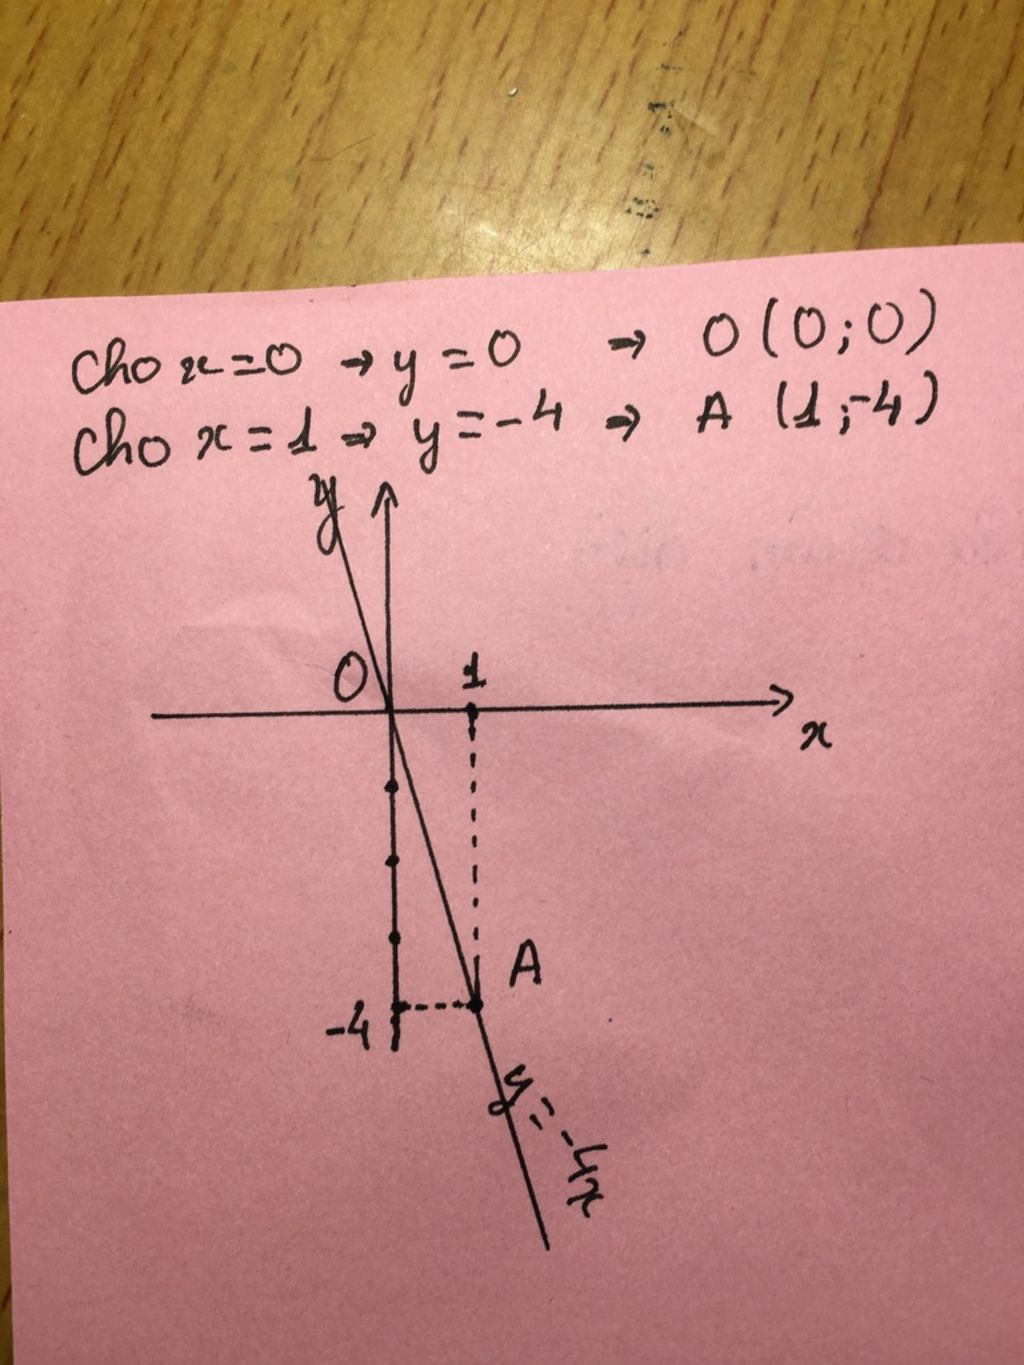 Cho x=0 → y=0 ⇒ O(0;0)
Cho x=1 ⇒ y=-4 ⇒ A (1;-4)
y
O
1
x
A
-4
y=-4x